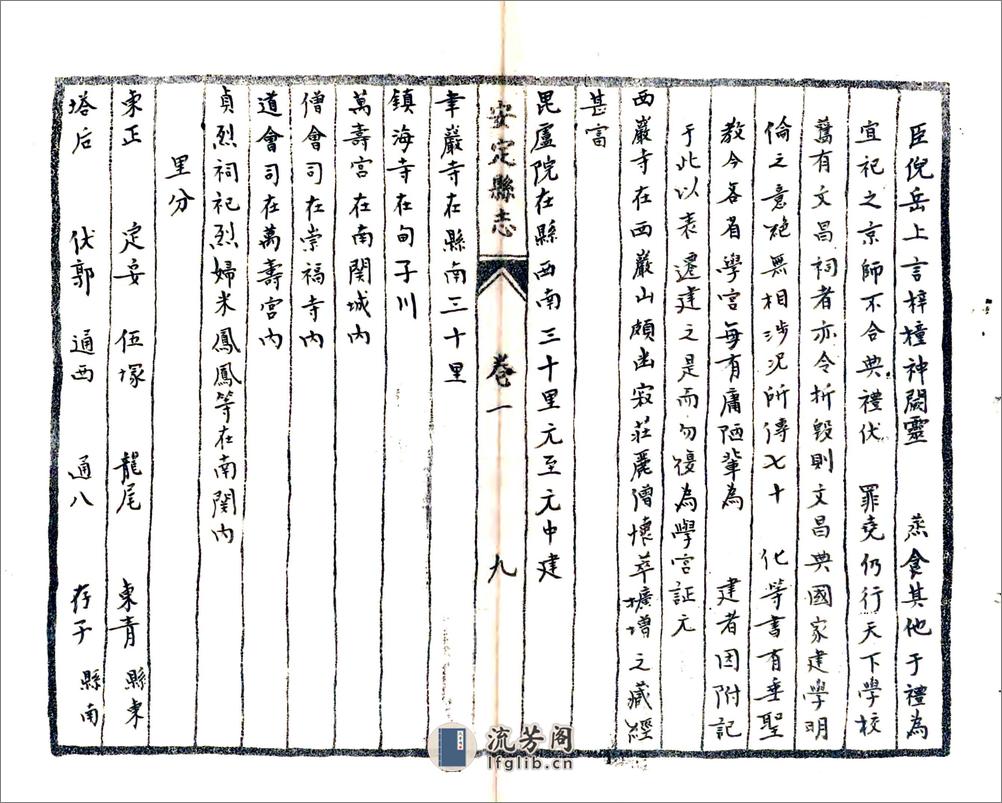 臣倪岳上言梓橦神闕靈 蒸食其他于禮為
宜祀之京師不合典禮伏 罪堯仍行天下學校
舊有文昌祠者亦令折毀則文昌典國家建學明
倫之意絶無相涉况所傳七十 化等書有垂聖
教今各省學宮每有庸陋輩為 建者因附記
于此以表遷建之是而勿復為學宮証元
西巖寺在西巖山頗幽寂莊麗僧懷萃擴增之藏經
甚富
毘盧院在縣西南三十里元至元中建
安定縣志 卷一 九
聿巖寺在縣南三十里
鎮海寺在甸子川
萬壽宮在南関城内
僧會司在崇福寺内
道會司在萬壽宮内
貞烈祠祀烈婦米鳳鳳等在南関内
里分
東正 定安 伍塚 龍尾 東青 縣東
塔后 伏郭 通西 通八 存子 縣南
流芳阁
lfglib.cn